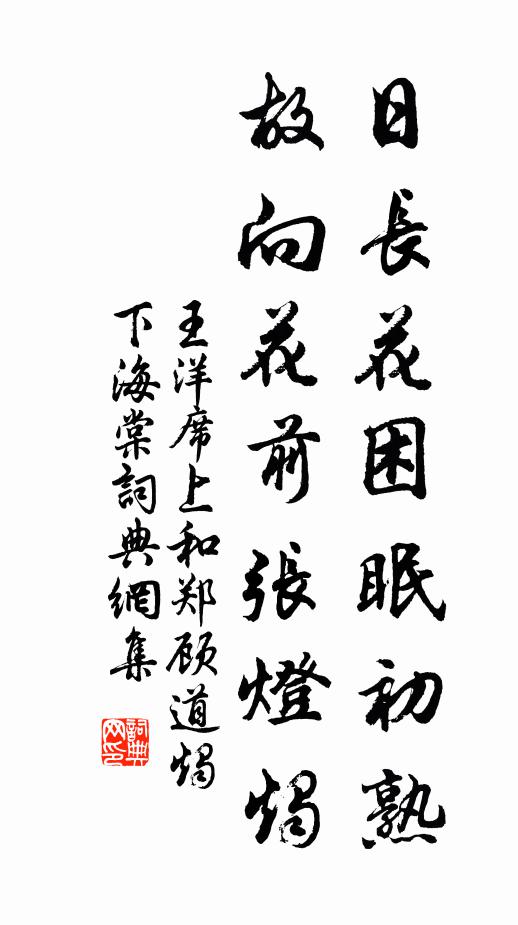 日長花困眠初熟
故向花前張燈燭
王洋席上和郑顾道燭
下海棠詞典網集
詞典
网印